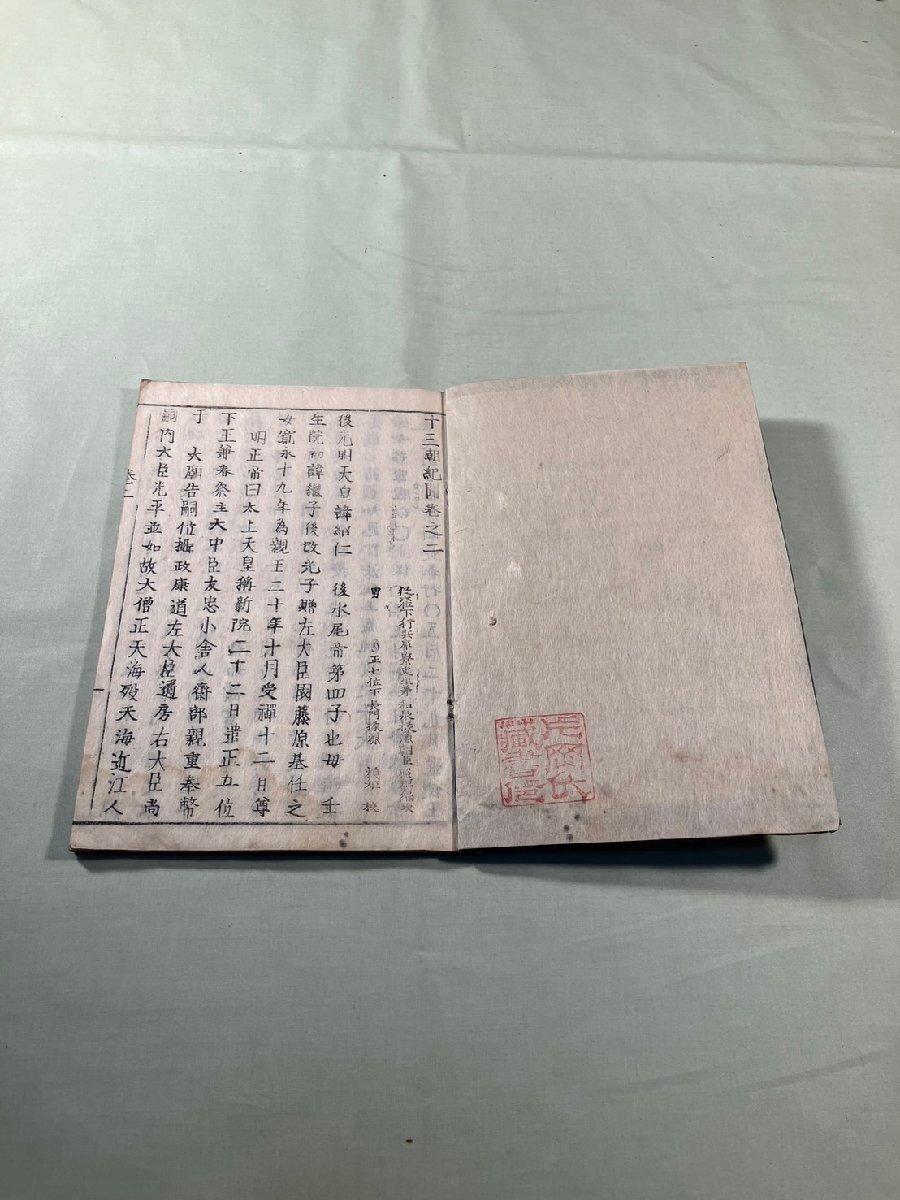 十三朝紀聞卷之二
後光明天皇諱紹仁 後水尾帝第四子也母 壬
生院初諱繼子後改光子贈左大臣園藤原基任之
女寬永十九年為親王二十年十月受禪十二日尊
明正帝曰太上天皇稱新院二十二日遣正五位
下王兼春祭主大中臣友忠小舍人齋部親重奉幣
于 大廟告嗣位攝政康道左大臣道房右大臣尚
嗣內大臣光平並如故大僧正天海歿天海近江人
卷二
片岡氏
藏書信